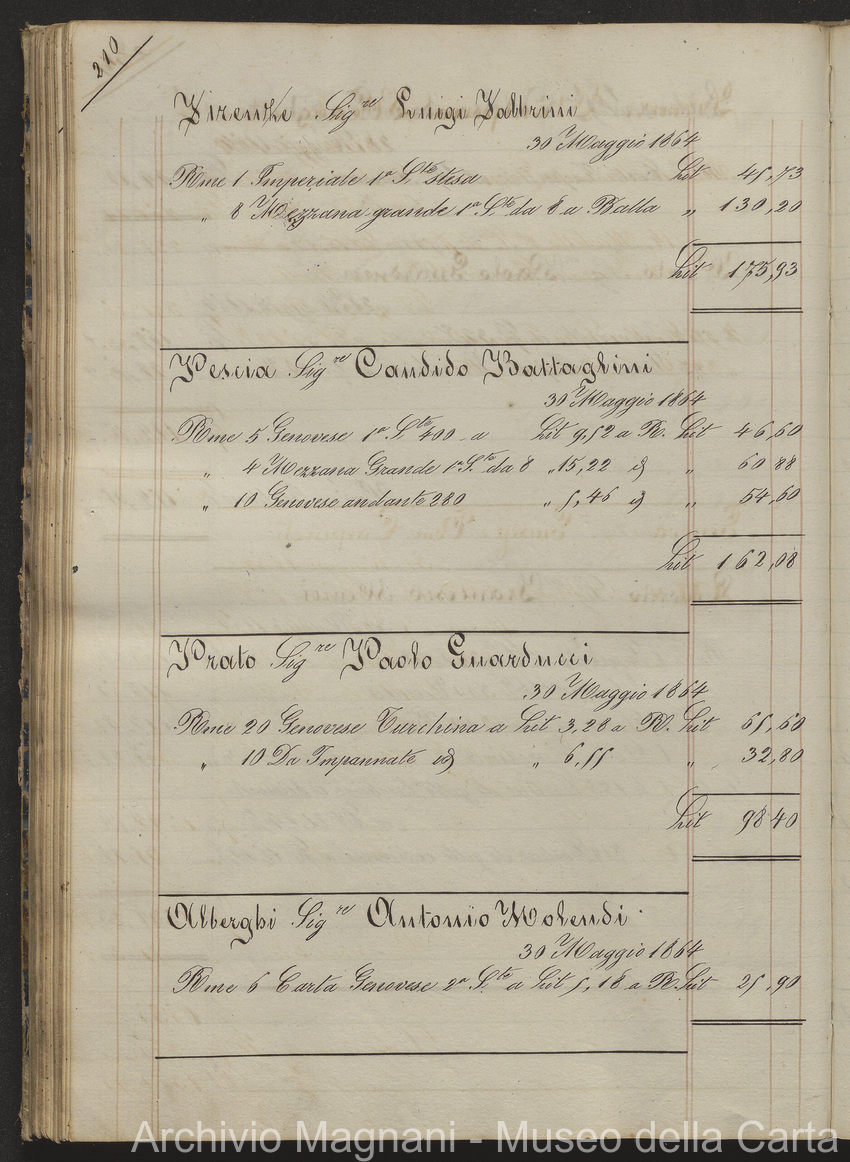 210
Firenze Sig.re Luigi Vallrini
30 Maggio 1864
Rme 1 Imperiale 1a S.te stesa Lit 45,73
„ 8 Mezzana grande 1a S.te da 8 a Balla „ 130,20
Lit 175,93
Pescia Sig.re Candido Battaglini
30 Maggio 1864
Rme 5 Genovese 1a S.te 400 - a Lit 9,52 a R. Lit 46,60
„ 4 Mezzana Grande 1a S.te da 8 „ 15,22 id „ 60 88
„ 10 Genovese andante 280 „ 5,46 id „ 54,60
Lit 162,08
Prato Sig.re Paolo Guarducci
30 Maggio 1864
Rme 20 Genovese Turchina a Lit 3,28 a R. Lit 65,60
„ 10 Da Impannate id „ 6,55 „ 32,80
Lit 98 40
Alberghi Sig.re Antonio Molendi
30 Maggio 1864
Rme 6 Carta Genovese 2a S.te a Lit 5,18 a R. Lit 25,90
Archivio Magnani - Museo della Carta